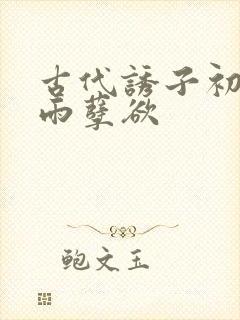 古代誘子初
雨孽欲
鲍文玉